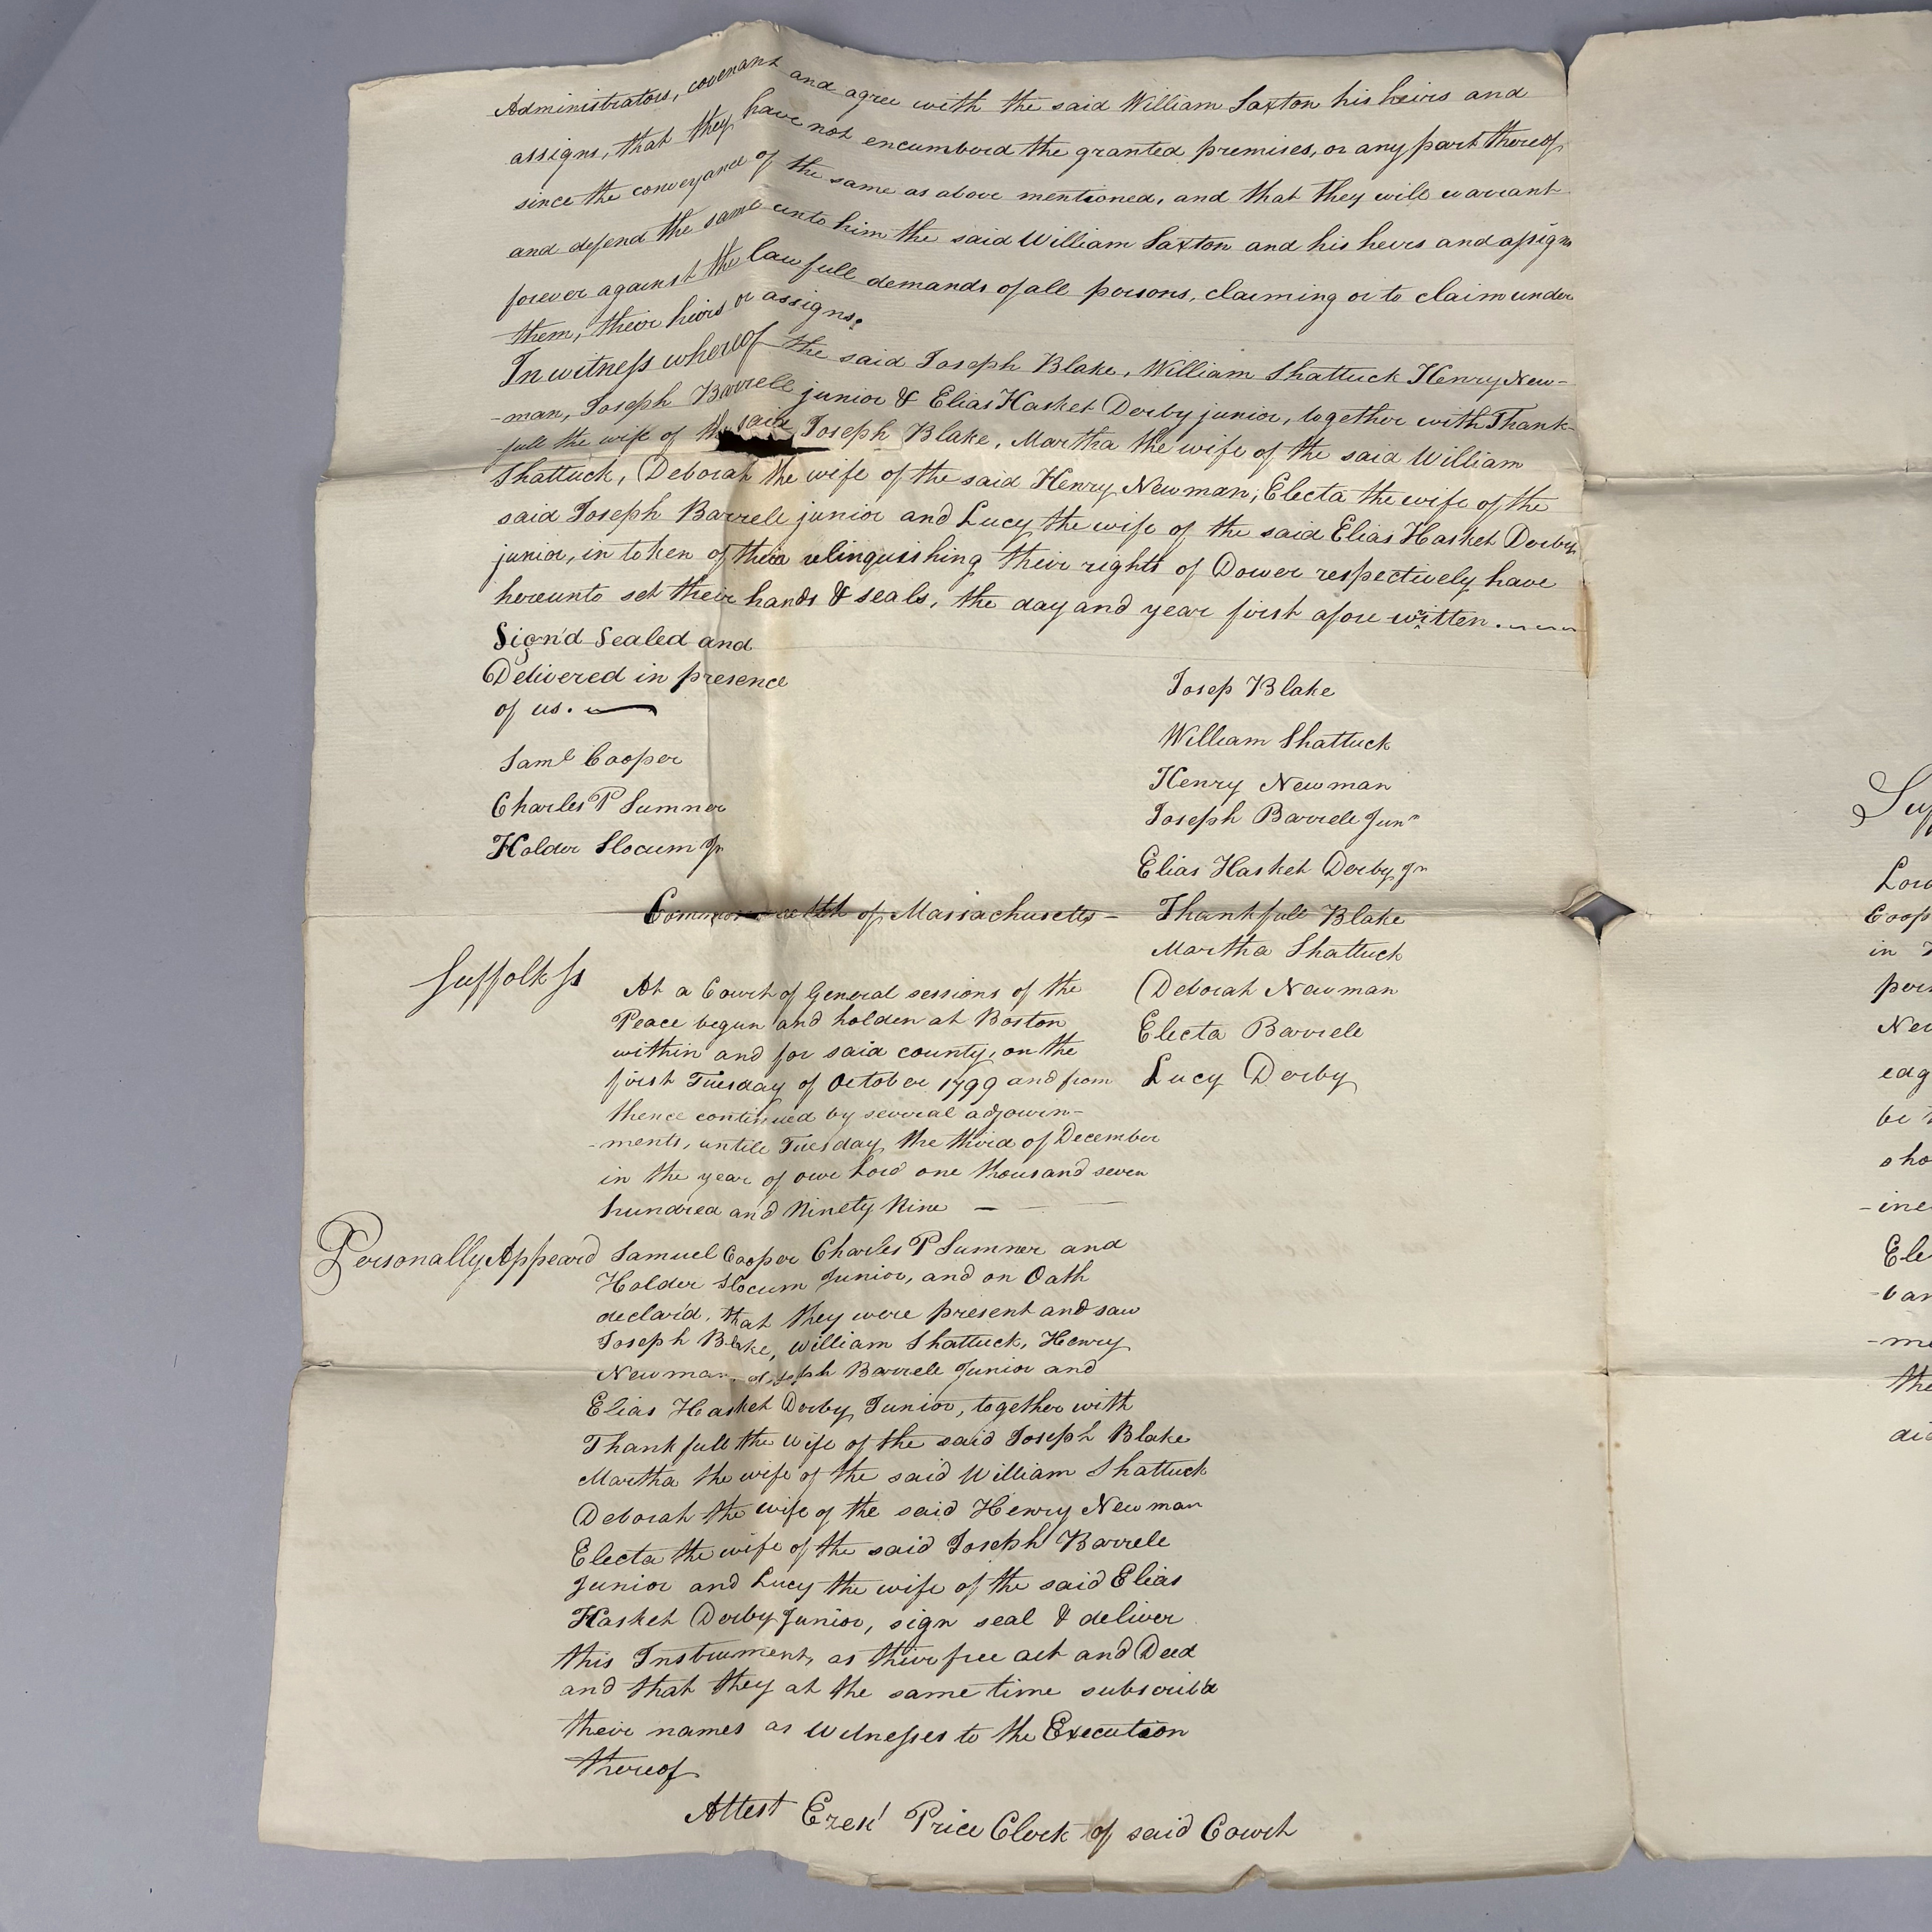 Administrators, covenant and agree with the said William Saxton his heirs and
assigns, that they have not encumberd the granted premises, or any part thereof
since the conveyance of the same as above mentioned, and that they will warrant
and defend the same unto him the said William Saxton and his heirs and assigns
forever against the lawfull demands of all persons, claiming or to claim under
them, their heirs or assigns.
In witness whereof the said Joseph Blake, William Shattuck Henry New-
-man, Joseph Barrell junior & Elias Hasket Derby junior, together with Thank-
-full the wife of the said Joseph Blake, Martha the wife of the said William
Shattuck, Deborah the wife of the said Henry Newman, Electa the wife of the
said Joseph Barrell junior and Lucy the wife of the said Elias Hasket Derby
junior, in token of their relinquishing their rights of Dower respectively have
hereunto set their hands & seals, the day and year first afore written.
Sign'd Sealed and
Delivered in presence
of us.
Saml Cooper
Charles P Sumner
Holder Slocum Jr
Josep Blake
William Shattuck
Henry Newman
Joseph Barrell Junr
Elias Hasket Derby Jr
Thankfull Blake
Martha Shattuck
Deborah Newman
Electa Barrell
Lucy Derby
Commonwealth of Massachusetts
Suffolk Ss
At a Court of General sessions of the
Peace begun and holden at Boston
within and for said county, on the
first Tuesday of October 1799 and from
thence continued by several adjourn-
-ments, untill Tuesday the third of December
in the year of our Lord one thousand seven
hundred and Ninety Nine
Personally Appeard Samuel Cooper Charles P Sumner and
Holder Slocum Junior, and on Oath
declar'd, that they were present and saw
Joseph Blake, William Shattuck, Henry
Newman, Joseph Barrell Junior and
Elias Hasket Derby Junior, together with
Thankfull the Wife of the said Joseph Blake
Martha the wife of the said William Shattuck
Deborah the wife of the said Henry Newman
Electa the wife of the said Joseph Barrell
Junior and Lucy the wife of the said Elias
Hasket Derby Junior, sign seal & deliver
this Instrument, as their free act and Deed
and that they at the same time subscrib'd
their names as Witnesses to the Execution
thereof
Attest Ezekl Price Clerk of said Court
in